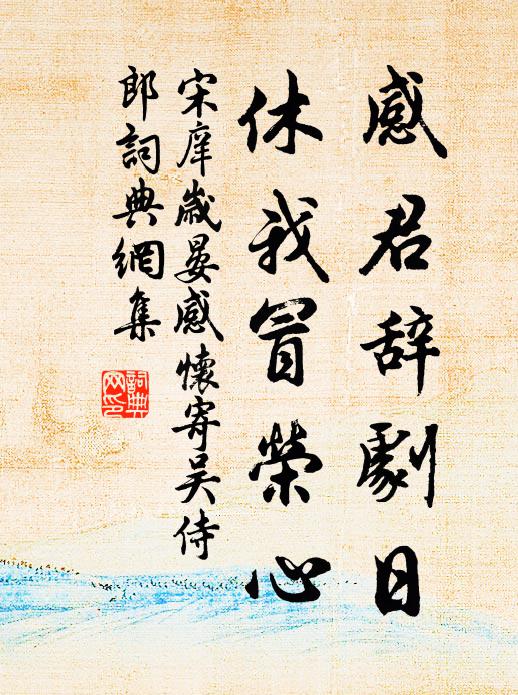 感君辞劇日
休我冒榮心
宋庠歲晏感懷寄吴侍
郎詞典網集
詞典
网印